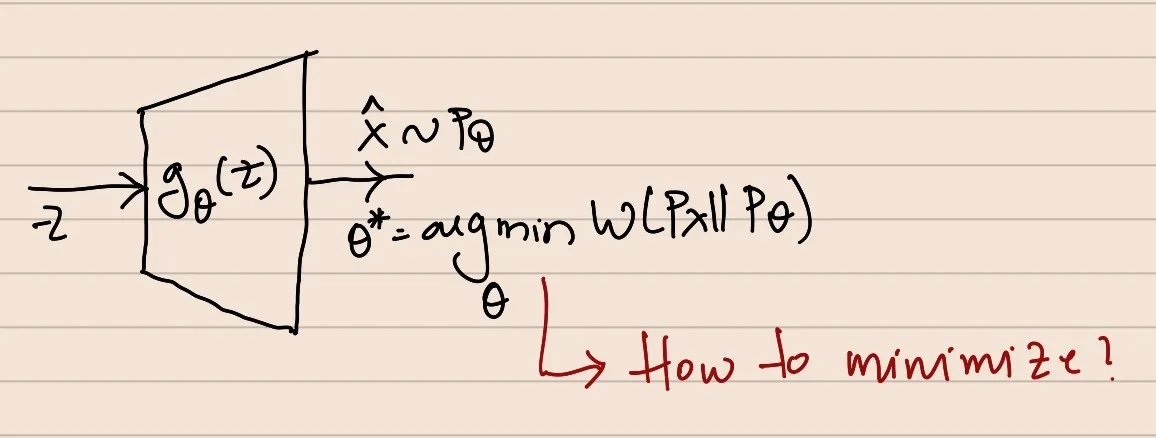 z
g_θ(z)
x̂ ~ P_θ
θ* = arg min W(P_X || P_θ)
θ
How to minimize?